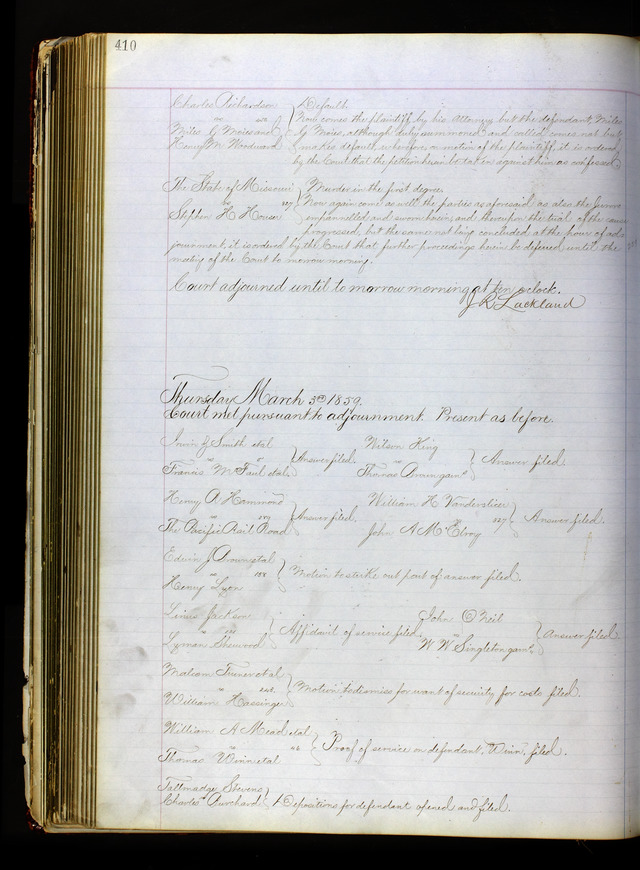 410
Charles Richardson } Default
vs
Now comes the plaintiff, by his Attorney but the defendant, Miles
Miles G Moies and
G Moies, although duly summoned and called comes not but
Henry M. Woodward
makes default, wherefore, on motion of the plaintiff, it is ordered
by the Court that the petition herein be taken against him as confessed
The State of Missouri } Murder in the first degree
vs 127
Now again come as well the parties as aforesaid as also the Jurors
Stephen H House
empannelled and sworn herein, and thereupon the trial of the cause
progressed, but the same not being concluded at the hour of ad-
journment, it is ordered by the Court that further proceedings herein be deferred until the
meeting of the Court to morrow morning.
Court adjourned until to morrow morning at ten o clock.
J R Lackland
Thursday March 3d 1859.
Court met pursuant to adjournment. Present as before.
Smith etal
vs } Answer filed.
Francis M Faul etal.
Wilson King
vs } Answer filed.
Thomas
Henry A Hammond
vs } Answer filed.
The Pacific Rail Road
William H Vanderslice
vs 127 } Answer filed.
John A McElroy
Edwin J Brown etal
vs 158 } Motion to strike out part of answer filed.
Henry Lyon
Linus Jackson
vs } Affidavit of service filed.
Lyman Sherwood
John O Neil
vs } Answer filed.
W W Singleton
Turner etal
vs 242. } Motion to dismiss for want of security for costs filed.
William Hassinger
William A Mead etal
vs } Proof of service on defendant, Winn, filed.
Thomas Winn etal
Tallmadge Stevens
vs } Depositions for defendant opened and filed.
Charles Burchard